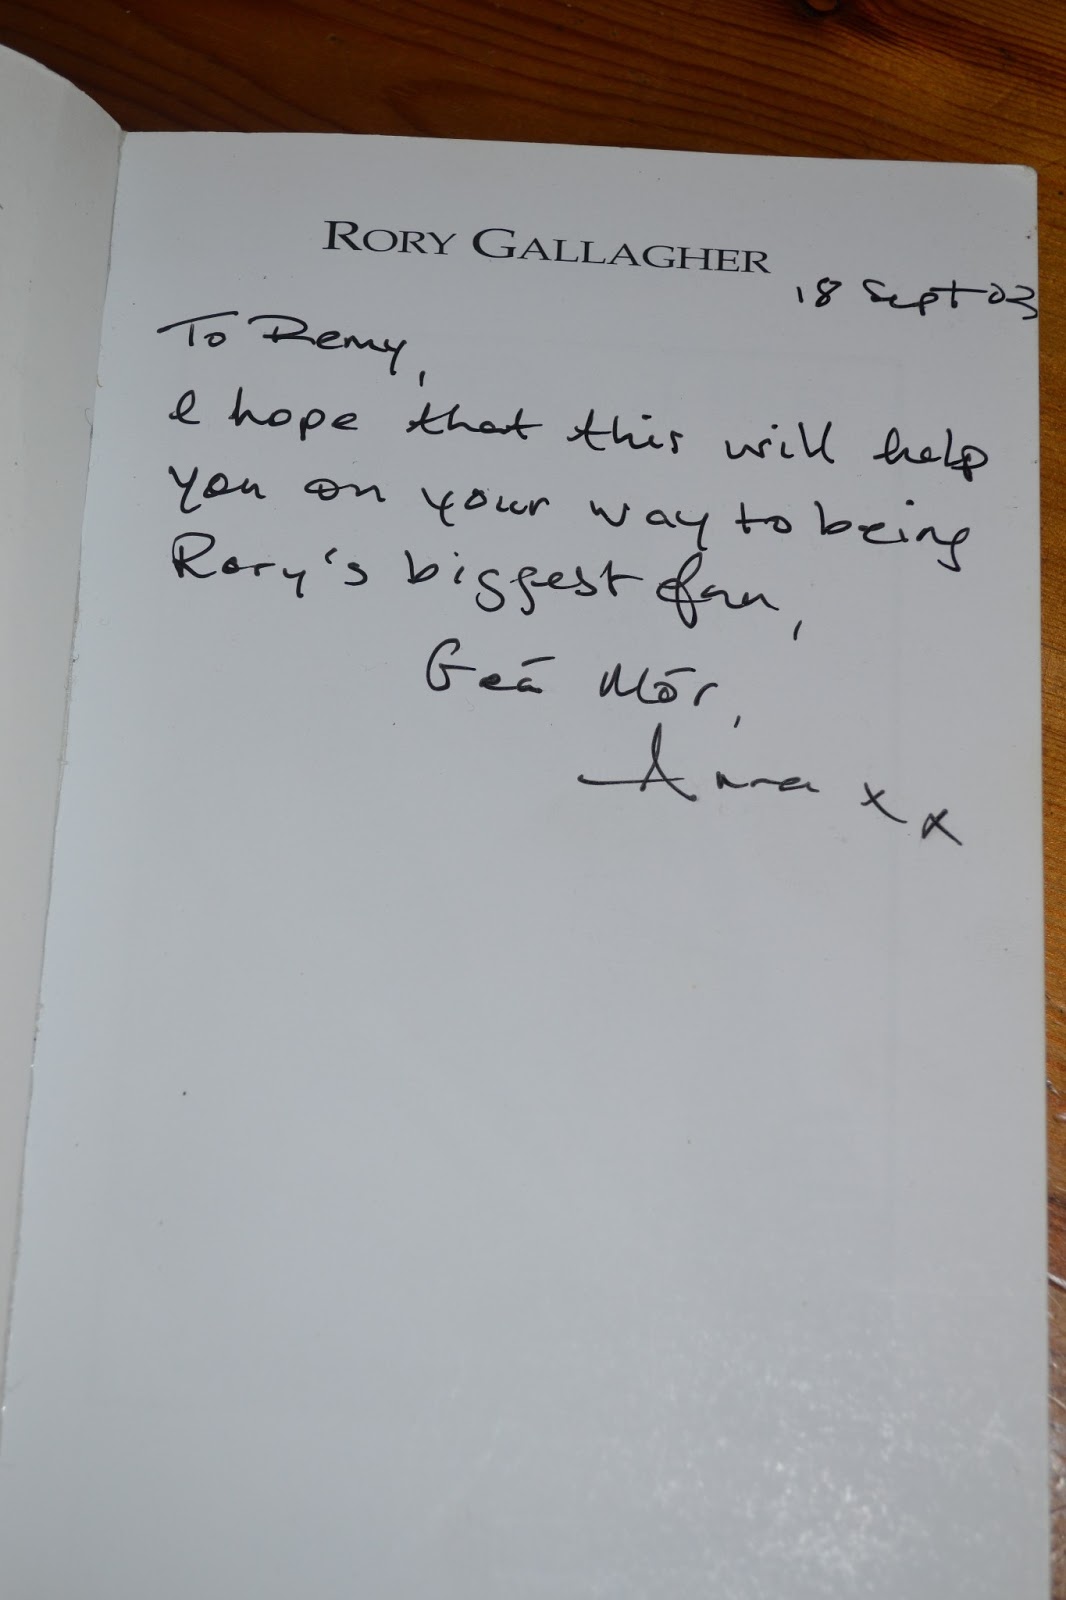 RORY GALLAGHER
18 Sept 03
To Remy,
I hope that this will help
you on your way to being
Rory's biggest fan,
Geā Mōr,
Anna x x